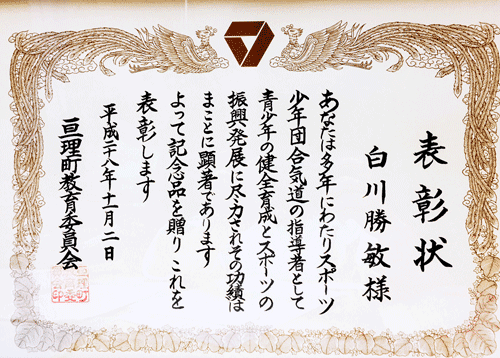 表彰状
白川勝敏様
あなたは多年にわたりスポーツ
少年団合気道の指導者として
青少年の健全育成とスポーツの
振興発展に尽力されその功績は
まことに顕著であります
よって記念品を贈りこれを
表彰します
平成二八年十一月二日
亘理町教育委員会